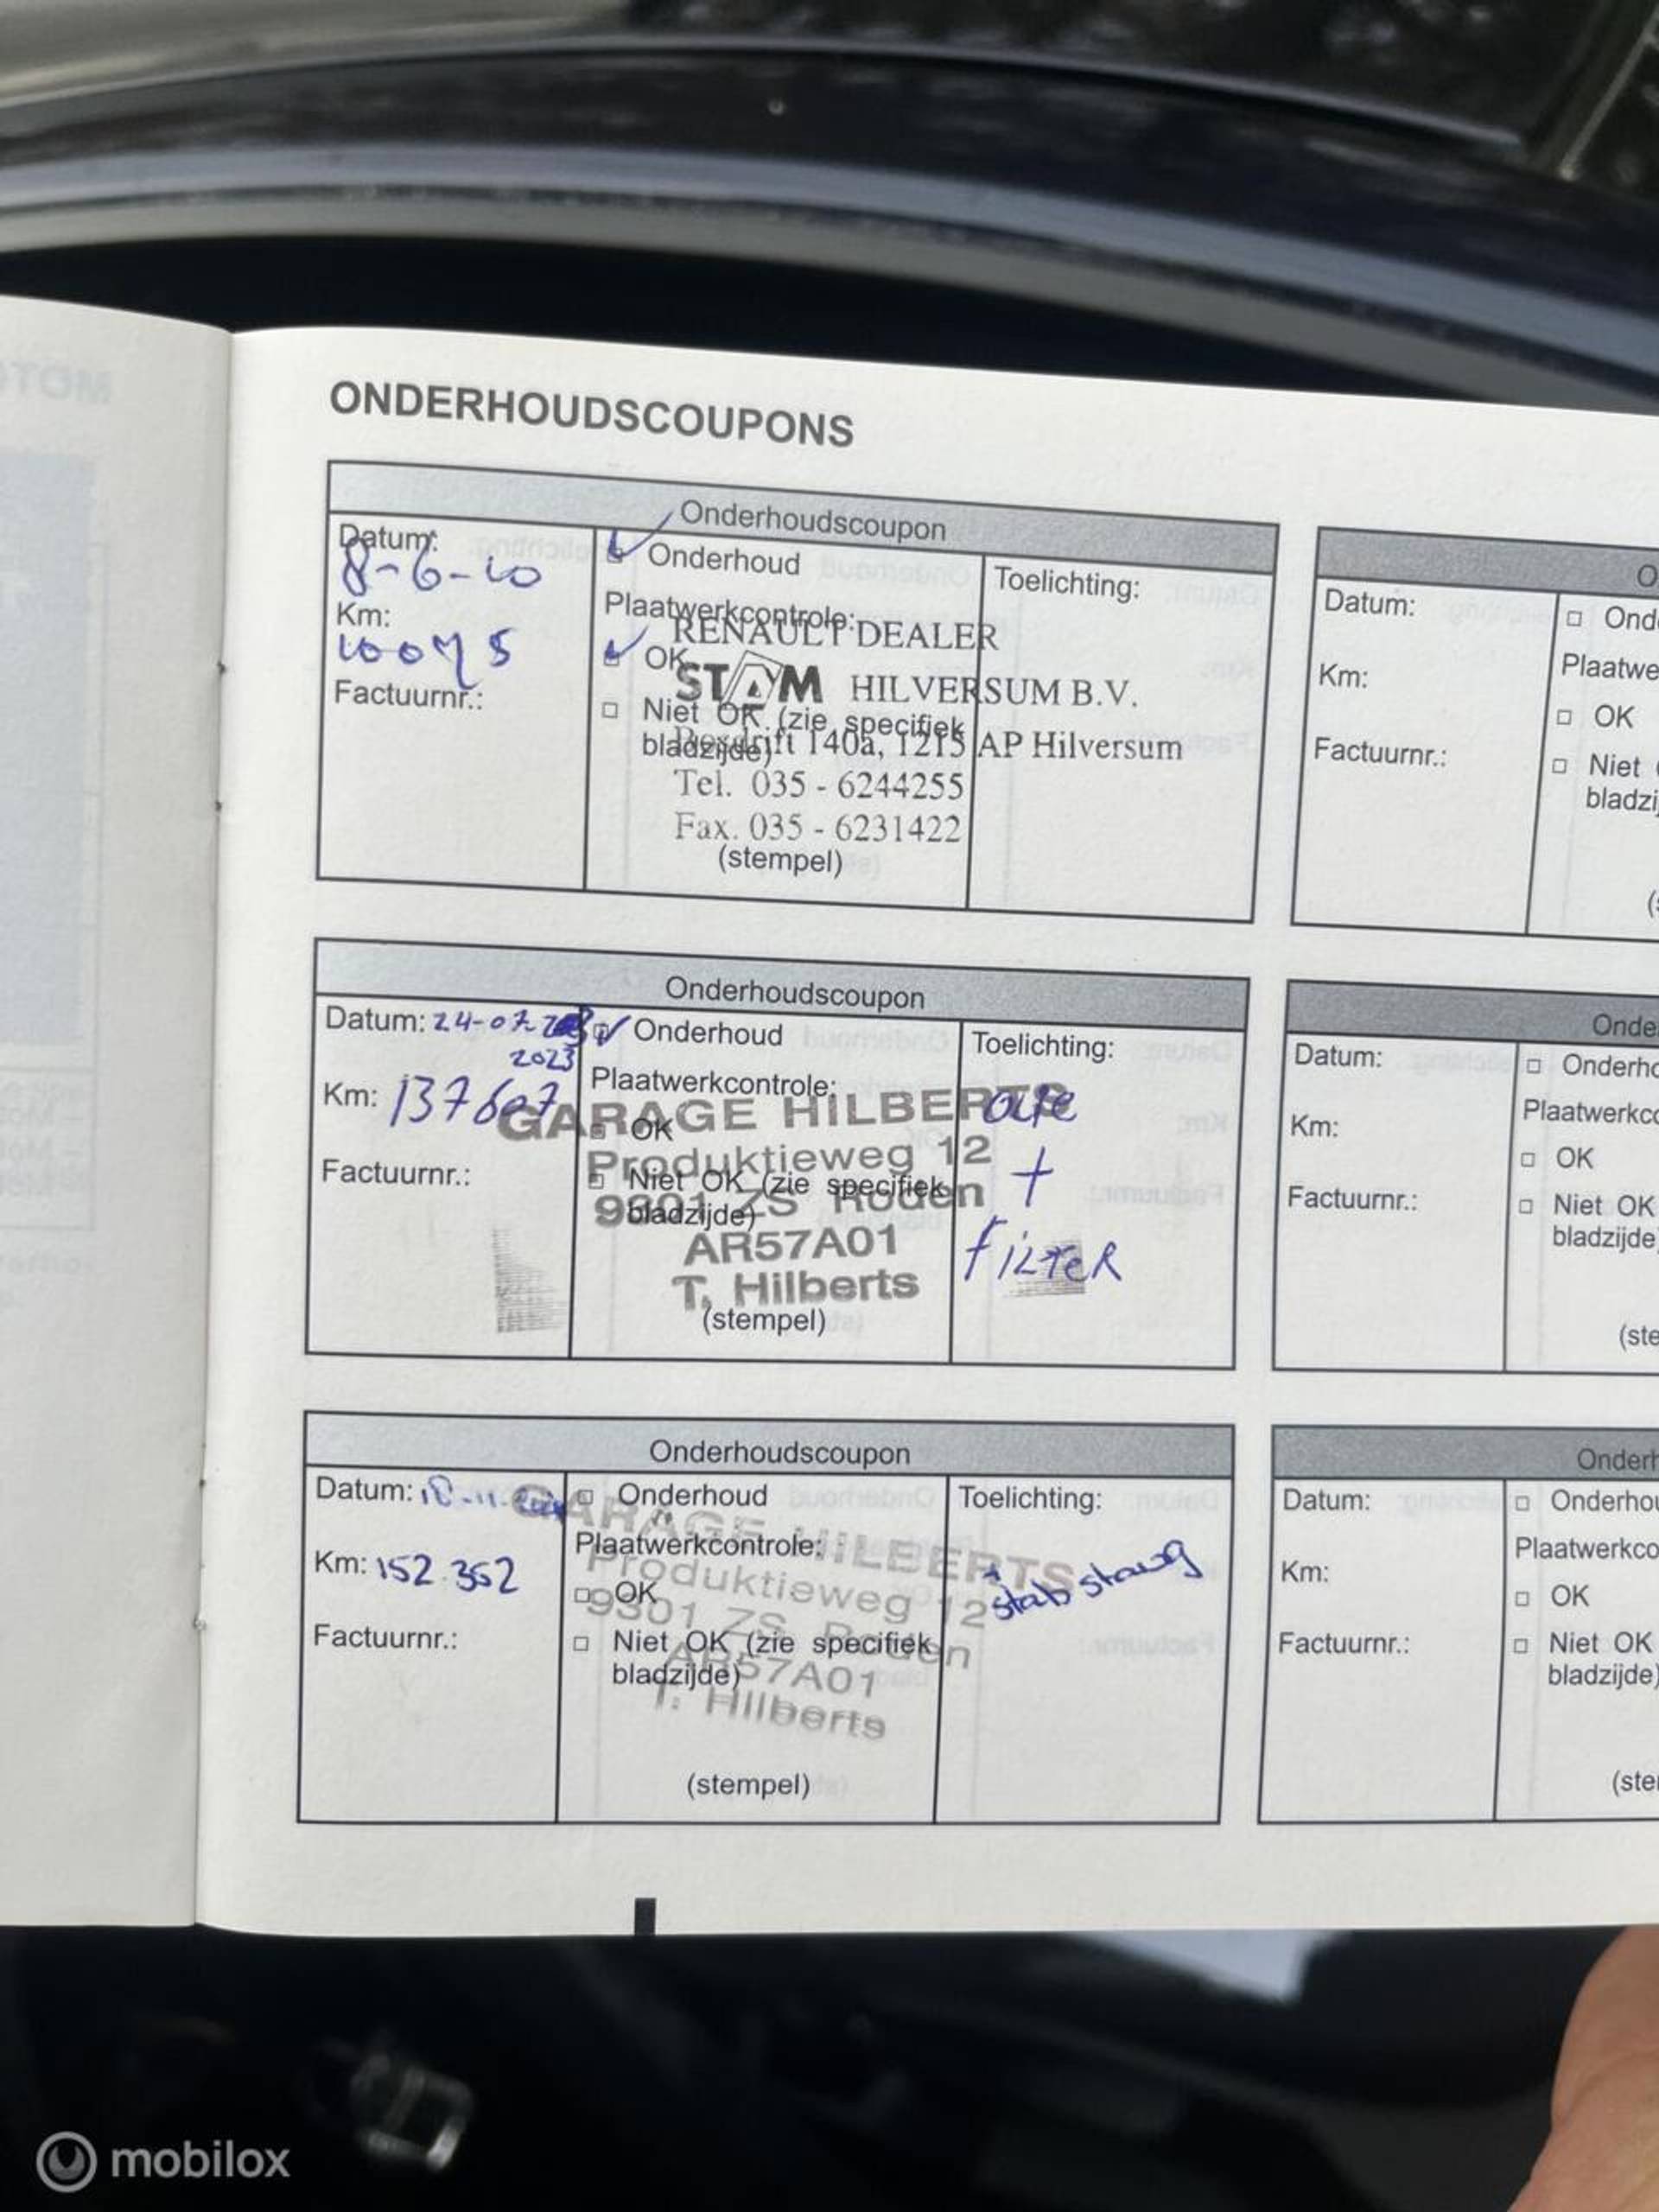 ONDERHOUDSCOUPONS
Onderhoudscoupon
Datum:
8-6-10
Km:
Factuurnr.:
Onderhoud
Plaatwerkcontrole:
OK
Niet OK (zie specifiek
bladzijde)
(stempel)
Toelichting:
RENAULT DEALER
STAM HILVERSUM B.V.
140a, 1215 AP Hilversum
Tel. 035 - 6244255
Fax. 035 - 6231422
Datum:
Km:
Factuurnr.:
Plaatwe
OK
Niet
Onderhoudscoupon
Datum: 24-07-
2023
Km: 137607
Factuurnr.:
Onderhoud
Plaatwerkcontrole:
OK
Niet OK (zie specifiek
bladzijde)
(stempel)
Toelichting:
olie
+
FilTeR
GARAGE HILBERTS
Produktieweg 12
9301 ZS Roden
AR57A01
T. Hilberts
Datum:
Km:
Factuurnr.:
Onderho
Plaatwerkco
OK
Niet OK
bladzijde
Onderhoudscoupon
Datum: 18-11-
Km: 152.352
Factuurnr.:
Onderhoud
Plaatwerkcontrole:
OK
Niet OK (zie specifiek
bladzijde)
(stempel)
Toelichting:
stabstang
GARAGE HILBERTS
Produktieweg 12
9301 ZS Roden
AR57A01
T. Hilberts
Datum:
Km:
Factuurnr.:
Onderhou
Plaatwerkco
OK
Niet OK
bladzijde)
mobilox